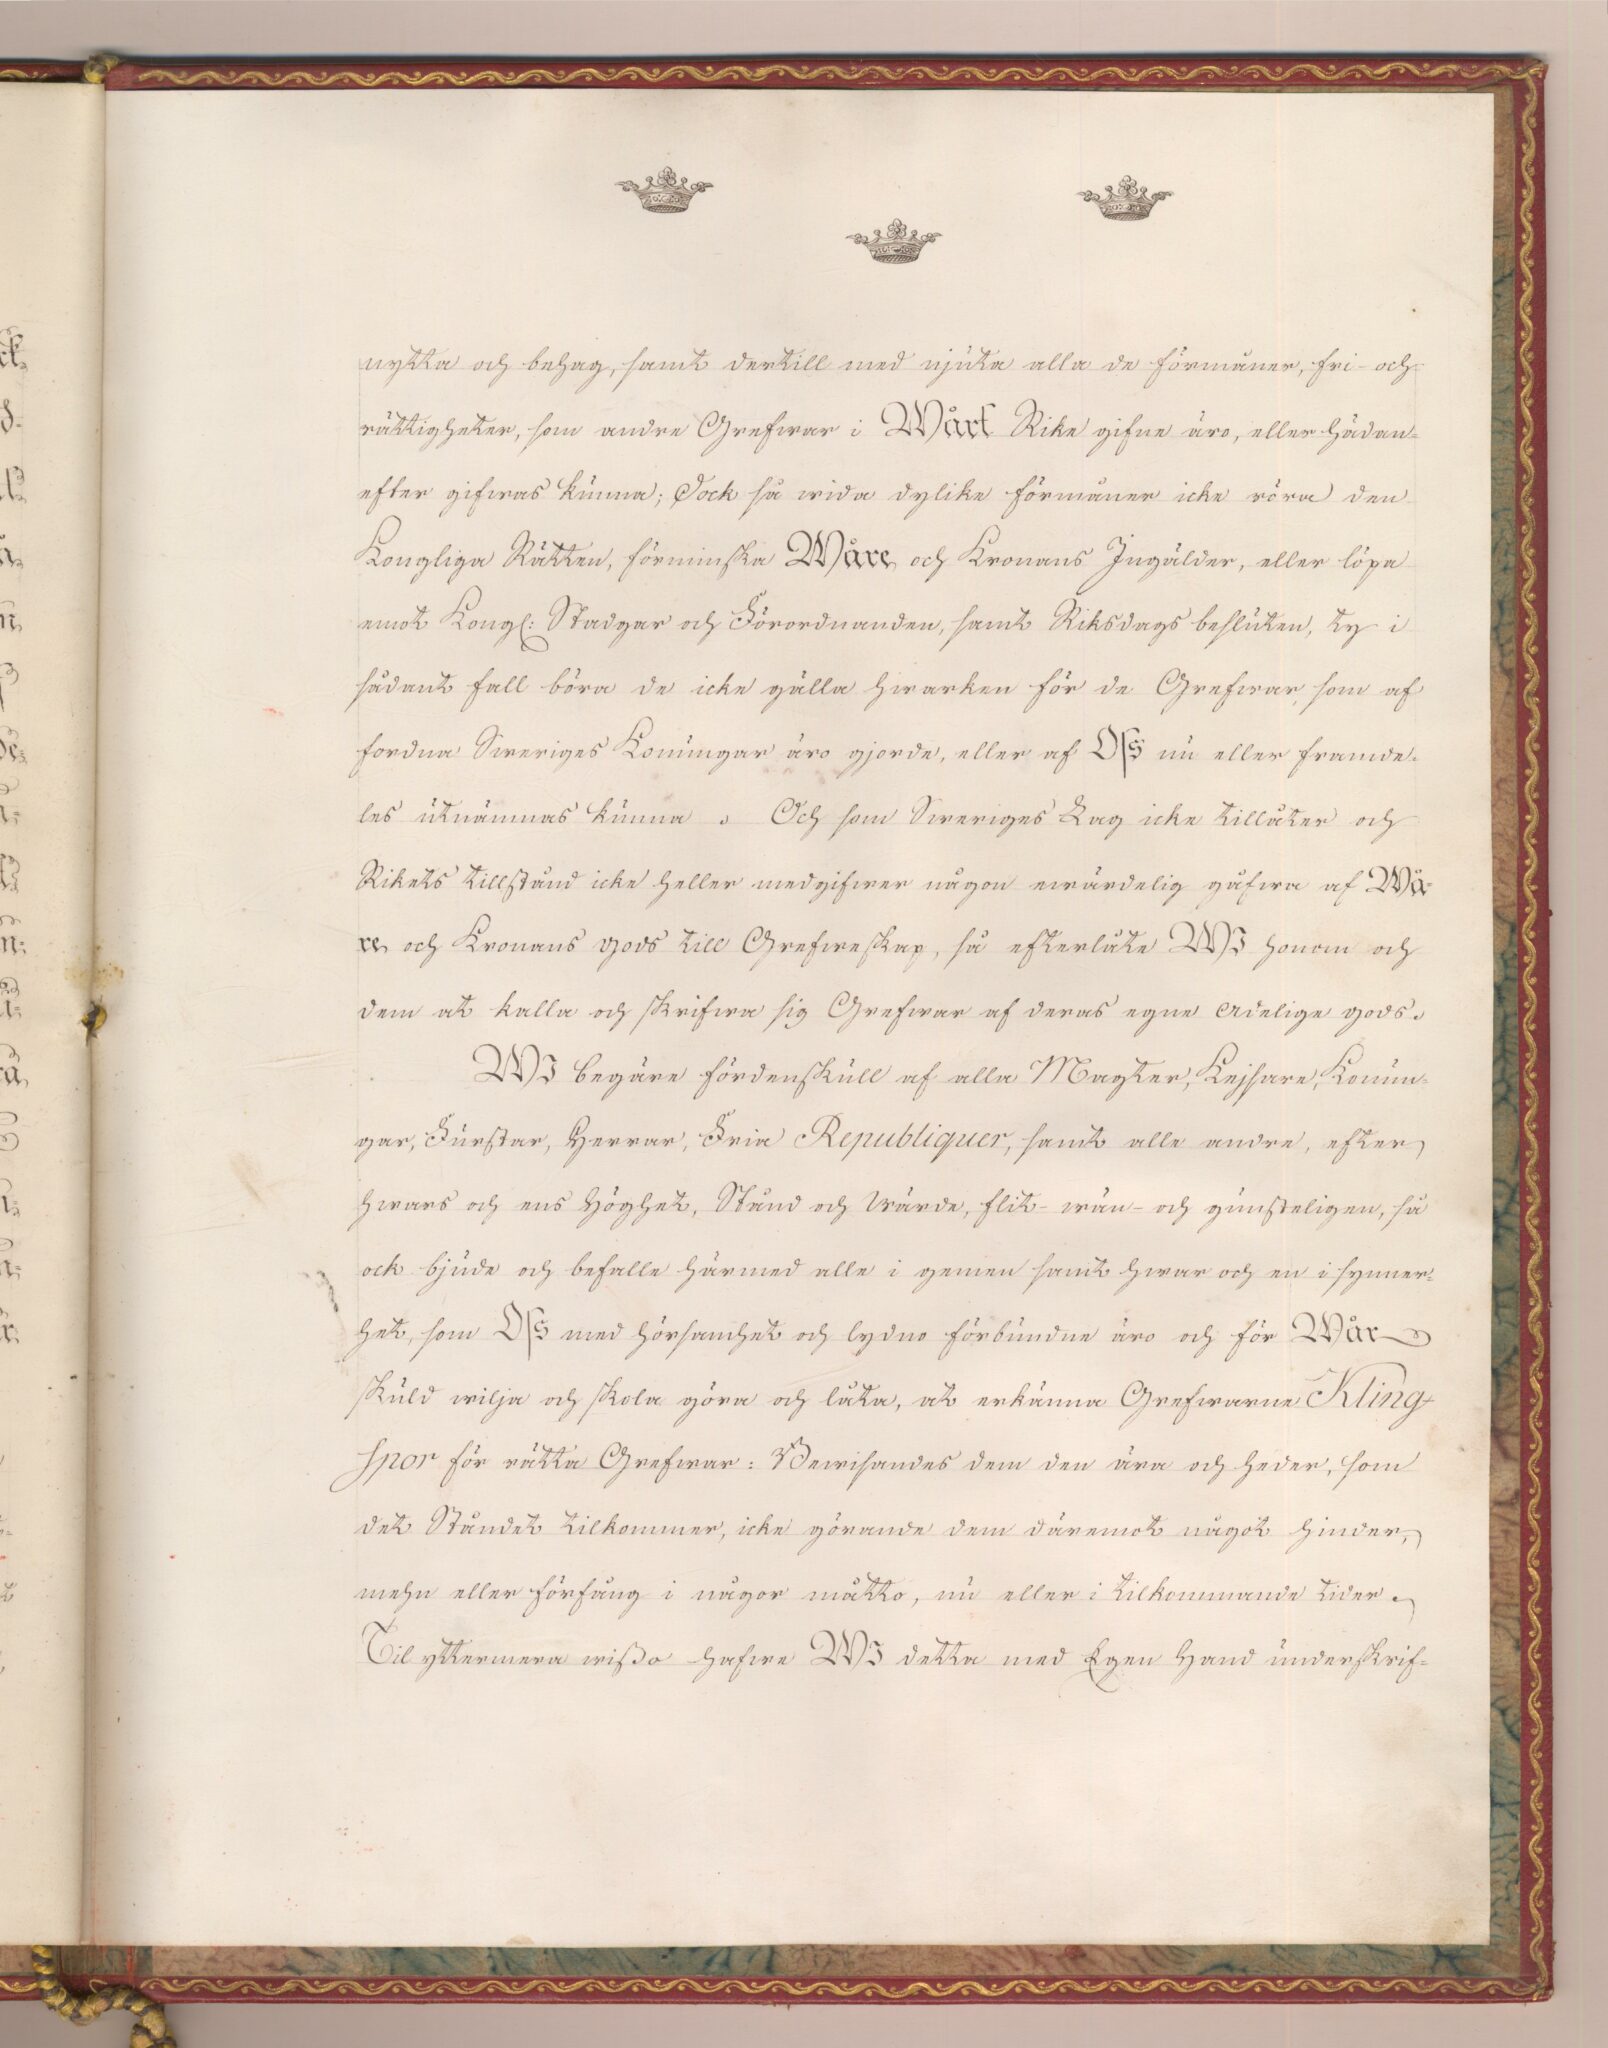 nytta och behag, samt dertill med njuta alla de förmåner, fri- och
rättigheter, som andre Grefwar i Wårt Rike gifne äro, eller hädan-
efter gifwas kunna; Dock så wida dylike förmåner icke röra den
Kongliga Rätten, förminska Wåre och Kronans Ingälder, eller löpa
emot Kongl: Stadgar och Förordnanden, samt Riksdags besluten, ty i
sådant fall böra de icke gälla hwarken för de Grefwar, som af
fordna Sweriges Konungar äro gjorde, eller af Oss nu eller framde-
les utnämnas kunna. Och som Sweriges Lag icke tillåter och
Rikets tillstånd icke heller medgifwer någon ewärdelig gåfwa af Wå-
re och Kronans gods till Grefweskap, så efterlåte WI honom och
dem at kalla och skrifwa sig Grefwar af deras egne adelige gods.
WI begäre fördenskull af alla Magter, Kejsare, Konun-
gar, Furstar, Herrar, Fria Republiquer, samt alle andre, efter
hwars och ens Höghet, Stånd och Wärde, flit- wän- och gunsteligen, så
ock bjude och befalle härmed alle i gemen samt hwar och en i synner-
het, som Oss med hörsamhet och lydno förbundne äro och för Wår
skuld wilja och skola göra och låta, at erkänna Grefwarne Kling-
spor för rätta Grefwar: Bewisandes dem den ära och heder, som
det Ståndet tilkommer, icke görande dem däremot något hinder,
mehn eller förfång i någor måtto, nu eller i tilkommande tider.
Til yttermera wißo hafwe WI detta med Egen Hand underskrif-